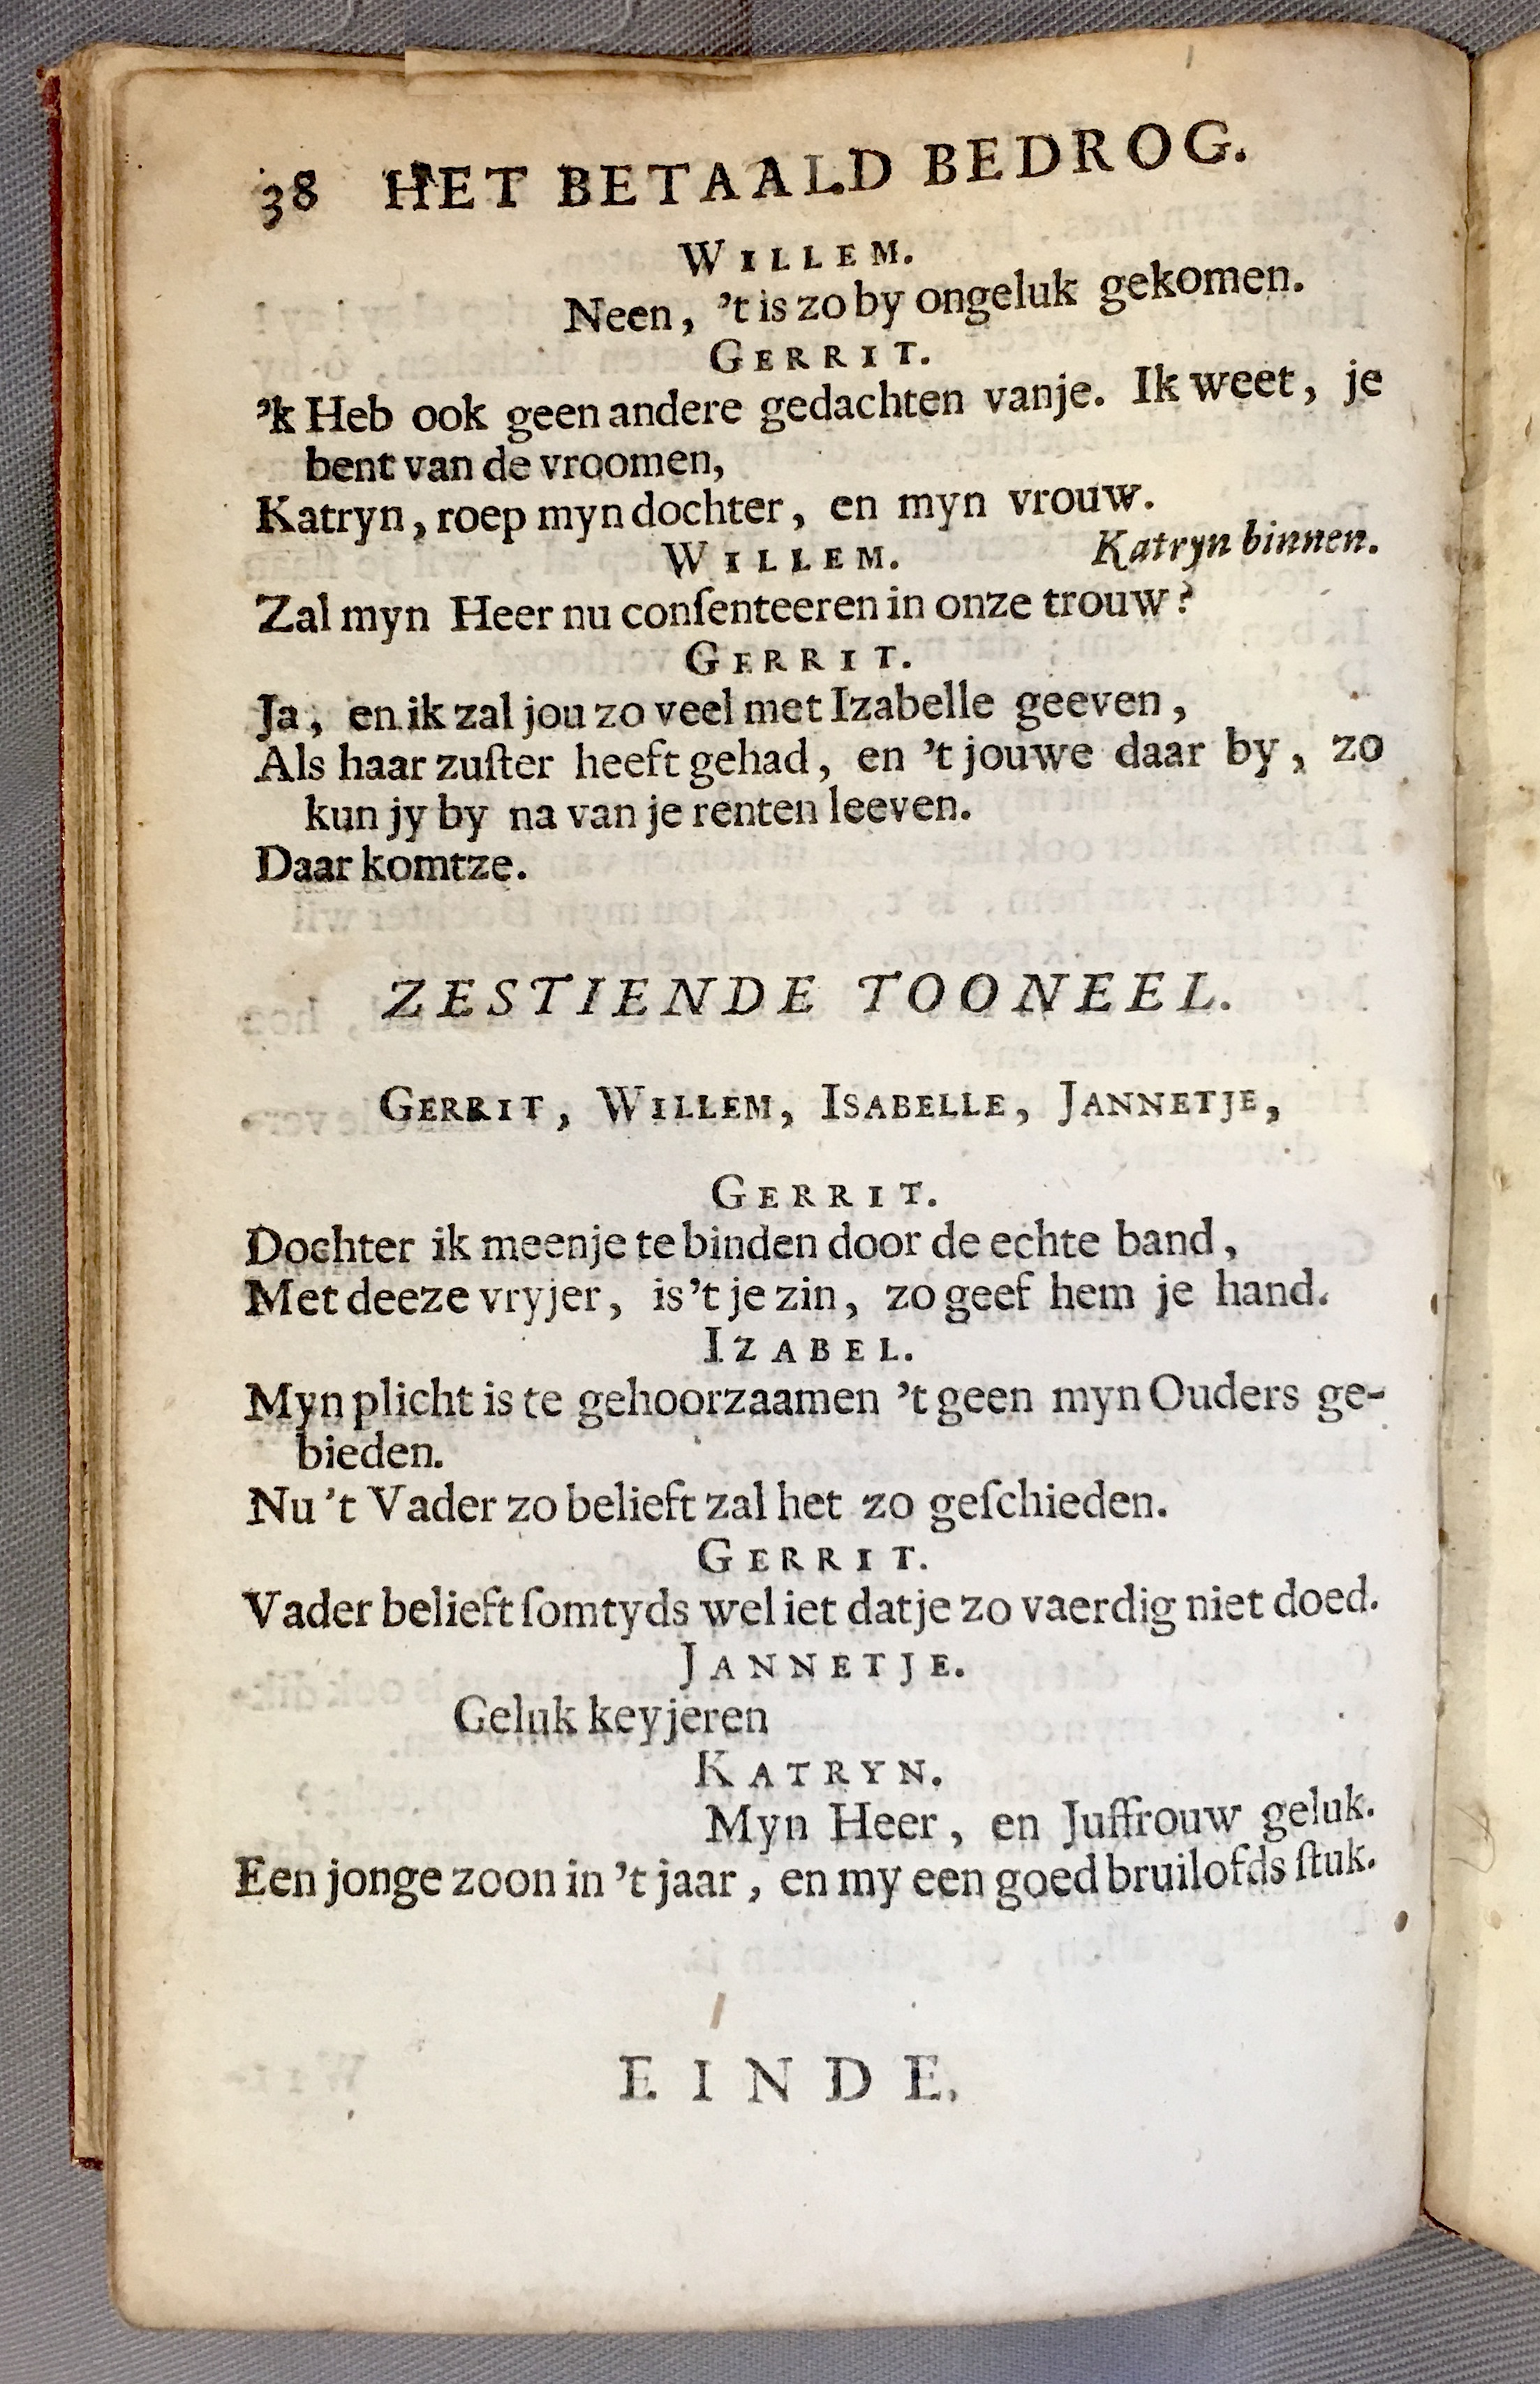 38 HET BETAALD BEDROG.
WILLEM.
Neen, 't is zo by ongeluk gekomen.
GERRIT.
'k Heb ook geen andere gedachten vanje. Ik weet, je
bent van de vroomen,
Katryn, roep myn dochter, en myn vrouw.
Katryn binnen.
WILLEM.
Zal myn Heer nu conſenteeren in onze trouw?
GERRIT.
Ja, en ik zal jou zo veel met Izabelle geeven,
Als haar zuſter heeft gehad, en 't jouwe daar by, zo
kun jy by na van je renten leeven.
Daar komtze.
ZESTIENDE TOONEEL.
GERRIT, WILLEM, ISABELLE, JANNETJE,
GERRIT.
Dochter ik meenje te binden door de echte band,
Met deeze vryjer, is 't je zin, zo geef hem je hand.
IZABEL.
Myn plicht is te gehoorzaamen 't geen myn Ouders ge-
bieden.
Nu 't Vader zo belieft zal het zo geſchieden.
GERRIT.
Vader belieft ſomtyds wel iet datje zo vaerdig niet doed.
JANNETJE.
Geluk keyjeren
KATRYN.
Myn Heer, en Juffrouw geluk.
Een jonge zoon in 't jaar, en my een goed bruilofds ſtuk.
EINDE.